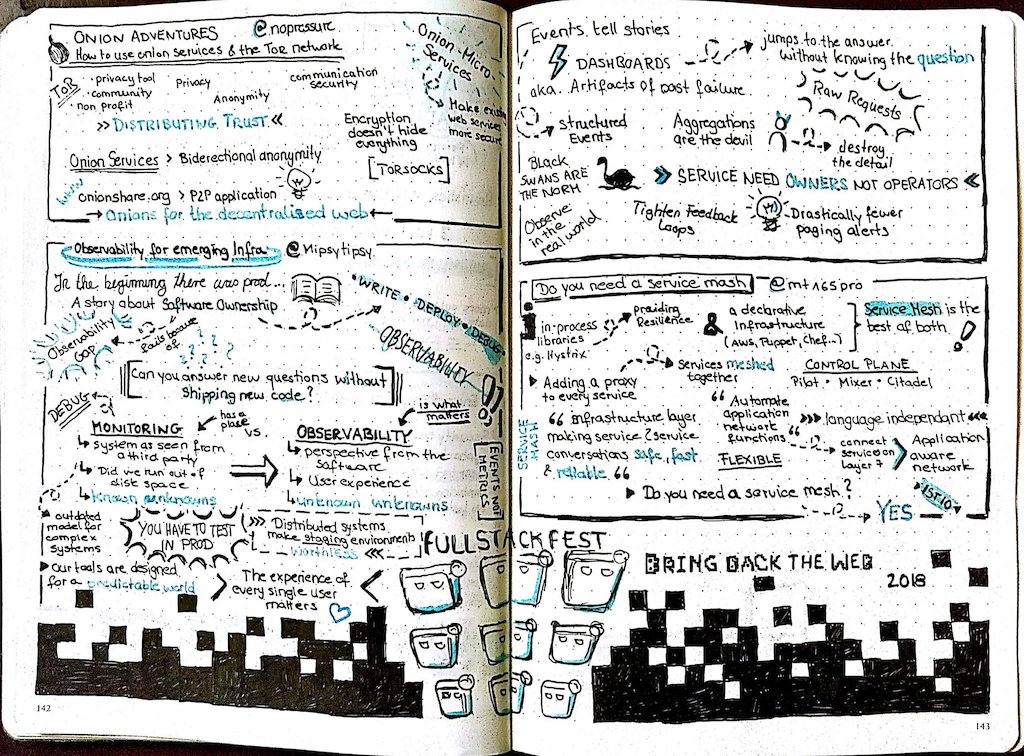 ONION ADVENTURES @nopressure
How to use onion services & the TOR network
TOR
• privacy tool
• community
non profit
Privacy
Anonymity
communication
security
Onion-Micro-
Services
Make existing
web services
more secure
>> DISTRIBUTING TRUST <<
Encryption
doesn't hide
everything
[TORSOCKS]
Onion Services > Biderectional anonymity
www
onionshare.org > P2P application
Onions for the decentralised web
Observability for emerging Infra @Mipsytipsy
In the beginning there was prod...
A story about Software Ownership
• WRITE • DEPLOY • DEBUG •
OBSERVABILITY
Observability
GAP
Fails because
of
? ? ? ? ?
Can you answer new questions without
shipping new code?
DEBUG
is what
matters
MONITORING
has a
place
vs.
OBSERVABILITY
system as seen from
a third party
Did we run out of
disk space
known unknowns
perspective from the
software
User experience
unknown unknowns
EVENTS NOT
METRICS
outdated
model for
complex
systems
YOU HAVE TO TEST
IN PROD
>>> Distributed systems
make staging environments
worthless <<<
Our tools are designed
for a predictable world
The experience of
every single user
matters
142
Events tell stories
DASHBOARDS
aka. Artifacts of past failure.
jumps to the answer
without knowing the question
Raw Requests
structured
Events
Aggregations
are the devil
destroy
the detail
Black
SWANS ARE
THE NORM
>> SERVICE NEED OWNERS NOT OPERATORS <<
Observe
in the
real world
Tighten Feedback
Loops
Drastically fewer
paging alerts
Do you need a service mash @mt165pro
in-process
libraries
e.g. Hystrix
praiding
Resilience
a declarative
Infrastructure
(AWS, Puppet, Chef...)
Service Mesh is the
best of both
!
Adding a proxy
to every service
services meshed
together
CONTROL PLANE
Pilot • Mixer • Citadel
SERVICE
MASH
"Infrastructure layer
making service 2 service
conversations safe, fast
& reliable"
"Automate
application
network
functions"
FLEXIBLE
>>> language independant <<<
connect
service on
Layer 7
Application
aware
network
Do you need a service mesh?
YES
ISTIO
FULLSTACKFEST
BRING BACK THE WEB
2018
143